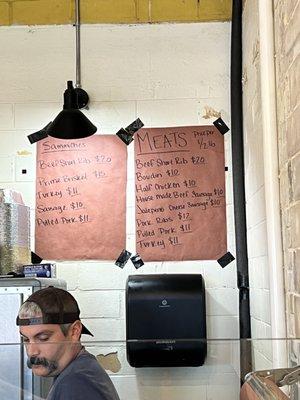 Sammiches
Beef Short Rib $20
Prime Brisket $15
Turkey $11
Sausage $10
Pulled Pork $11
MEATS Price per
1/2 lb
Beef Short Rib $20
Boudin $10
Half Chicken $10
House made Beef Sausage $10
Jalapeno Cheese Sausage $10
Pork Ribs $12
Pulled Pork $11
Turkey $11